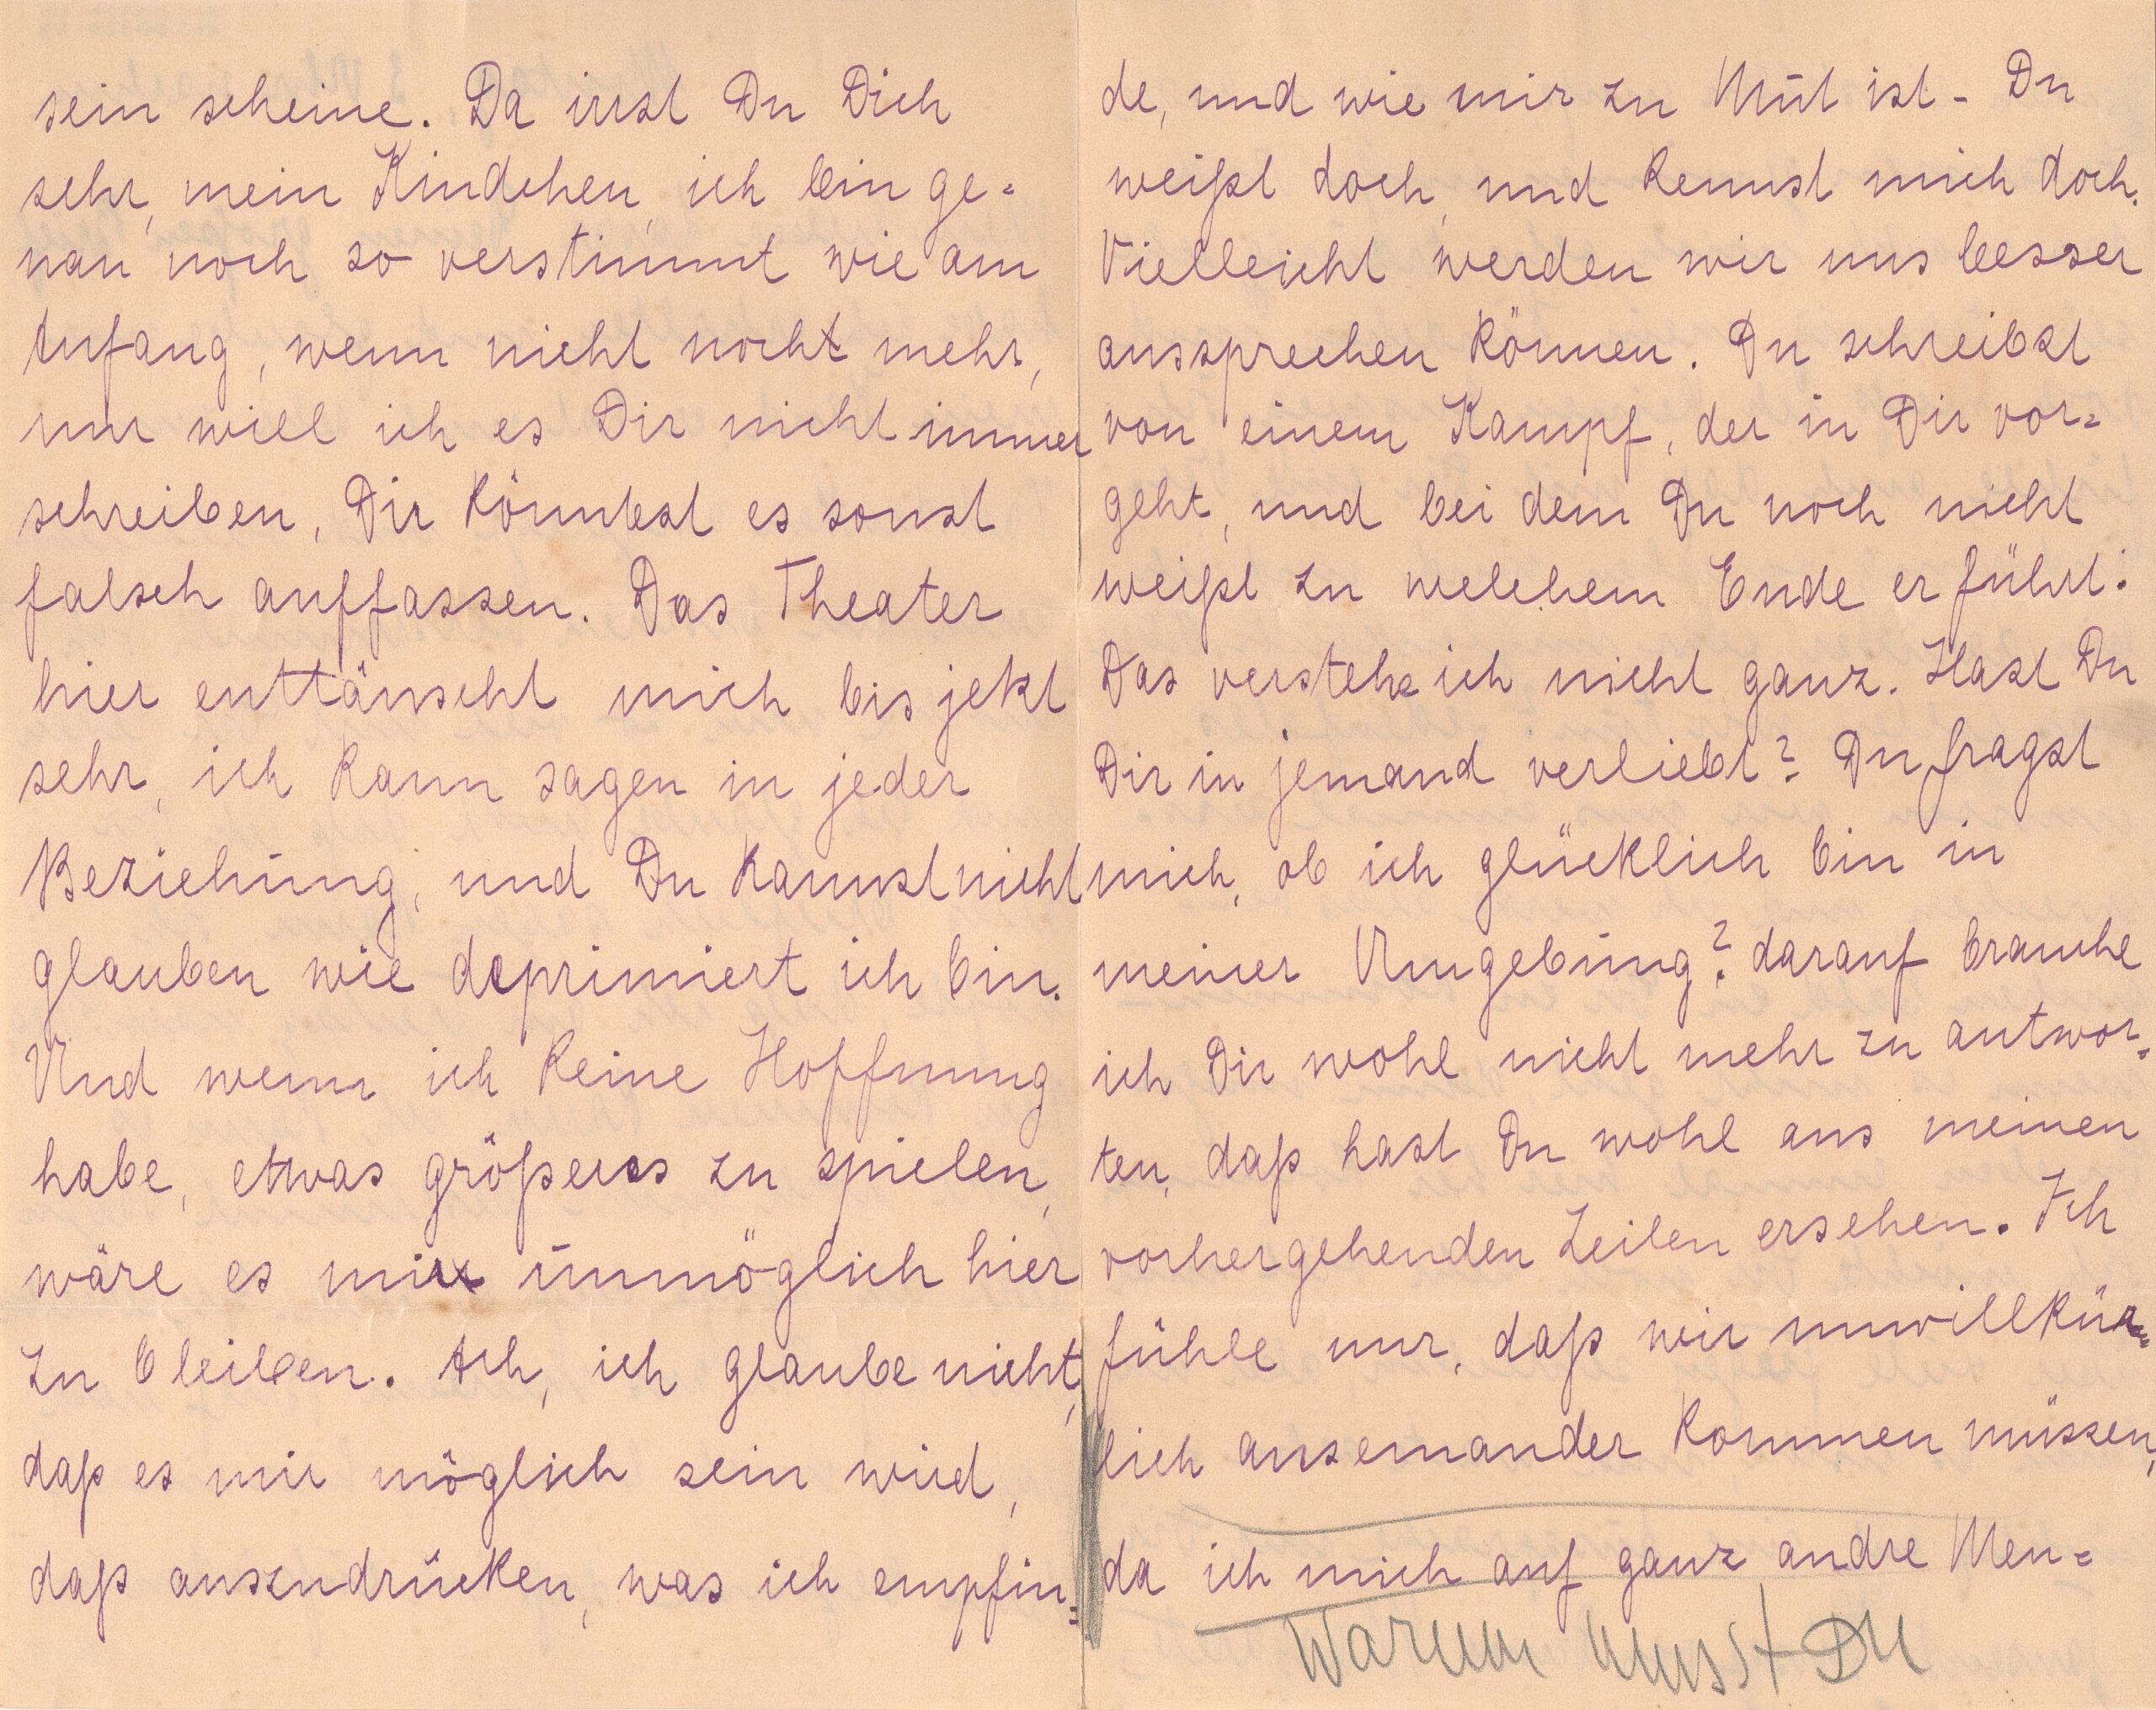 sein scheine. Da irrst Du Dich
sehr, mein Kindchen, ich bin ge=
nau noch so verstimmt wie am
Anfang, wenn nicht nocht mehr,
nur will ich es Dir nicht immer
schreiben, Dir könntest es sonst
falsch auffassen. Das Theater
hier enttäuscht mich bis jetzt
sehr, ich kann sagen in jeder
Beziehung, und Du kannst nicht
glauben wie deprimiert ich bin.
Und wenn ich keine Hoffnung
habe, etwas größeres zu spielen,
wäre es mir unmöglich hier
zu bleiben. Ach, ich glaube nicht,
daß es mir möglich sein wird,
daß auszudrücken, was ich empfin=
de, und wie mir zu Mut ist - Du
weißt doch, und kennst mich doch.
Vielleicht werden wir uns besser
aussprechen können. Du schreibst
von einem Kampf, der in Dir vor=
geht, und bei dem Du noch nicht
weißt zu welchem Ende er führt:
Das verstehe ich nicht ganz. Hast Du
Dir in jemand verliebt? Du fragst
mich, ob ich glücklich bin in
meiner Umgebung? darauf brauche
ich Dir wohl nicht mehr zu antwor=
ten, daß hast Du wohl aus meinen
vorhergehenden Zeilen ersehen. Ich
fühle nur, daß wir unwillkür=
lich auseinander kommen müssen,
da ich mich auf ganz andre Men=
Warum musst Du